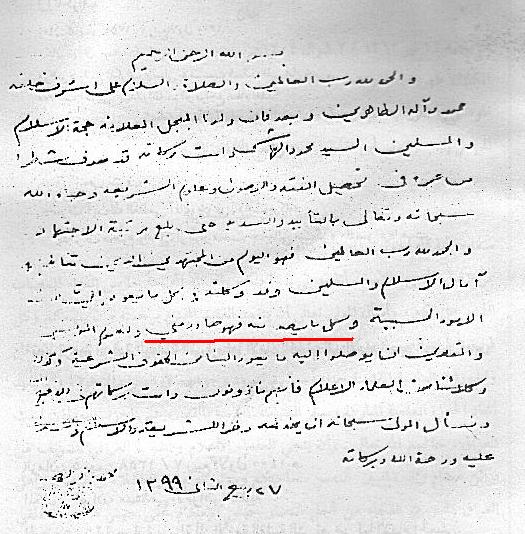 بسم الله الرحمن الرحيم
والحمد لله رب العالمين والصلاة والسلام على اشرف خلقه
محمد وآله الطاهرين وبعد فان ولدنا المبجل العلامة حجة الاسلام
والمسلمين السيد محمود الهاشمي دامت بركاته قد صرف شطرا
من عمره في تحصيل الفقه والاصول وعلوم الشريعة وحباه الله
سبحانه وتعالى بالتأييد والتسديد حتى بلغ مرتبة الاجتهاد
والحمد لله رب العالمين فهو اليوم من المجتهدين الذين
آمال الاسلام والمسلمين وقد وكلته في كل ما يعود
الامور الحسبية وكل ما يصدر منه فهو صادر مني
والمقلدين ان يوصلوا اليه ما يعود الينا من الحقوق الشرعية
وكلائنا من العلماء الاعلام فانهم مأذونون
ونسأل المولى سبحانه ان
عليه ورحمة الله وبركاته
٢٧ ربيع الثاني ١٣٩٩